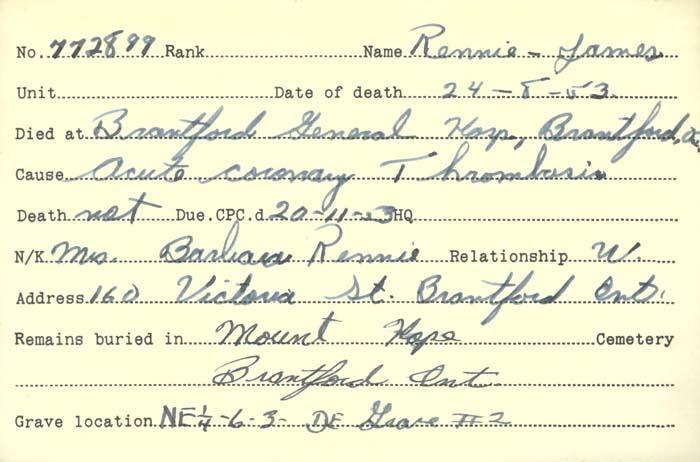 No. 772899 Rank Name Rennie - James
Unit Date of death 24 - 8 - 53.
Died at Brantford General Hosp, Brantford,
Cause Acute coronary Thrombosis
Death not Due.CPC.d 20-11-53 HQ
N/K Mrs. Barbara Rennie Relationship W.
Address 160 Victoria St. Brantford Ont.
Remains buried in Mount Hope Cemetery
Brantford Ont.
Grave location NE 1/4 -6-3- DE Grave #2